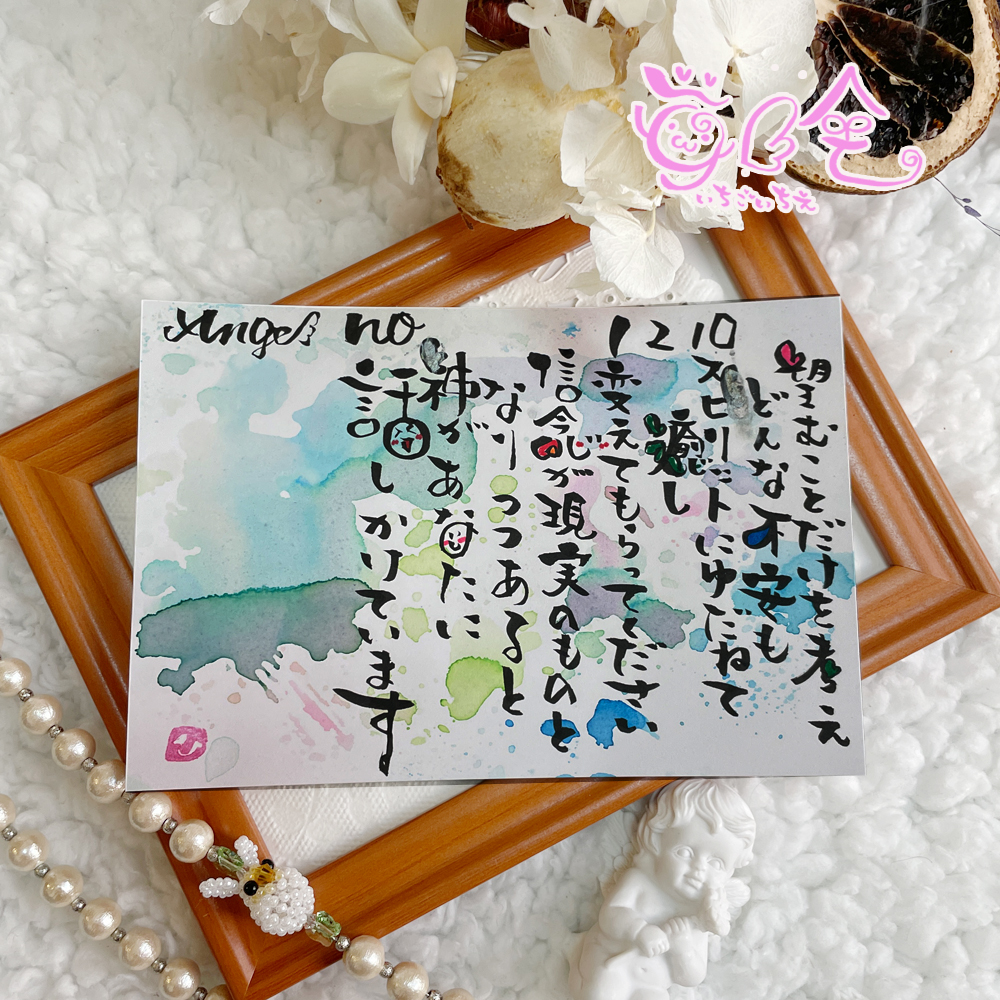 Angel no 1210
望むことだけを考え
どんな不安も
スピリットにゆだねて
癒し
変えてもらってください
信念が現実のものと
なりつつあると
神があなたに
話しかけています
いちごいちえ